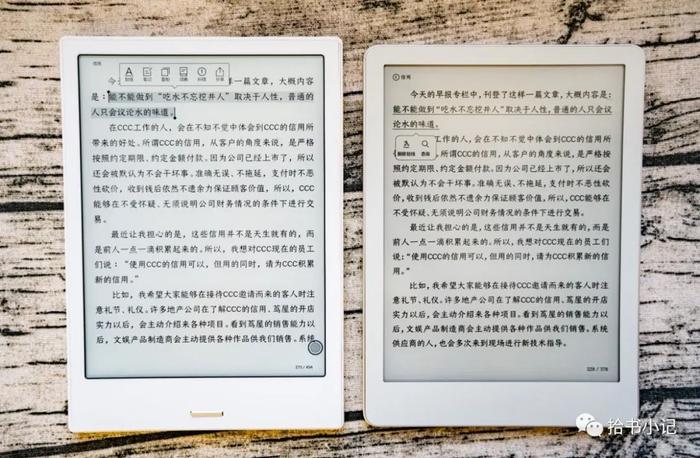 信用
划线
笔记
复制
词典
纠错
分享
今天
样一篇文章，大概内容
是：能不能做到“吃水不忘挖井人”取决于人性，普通的
人只会议论水的味道。
在CCC工作的人，会在不知不觉中体会到CCC的信用所
带来的好处。所谓CCC的信用，从客户的角度来说，是严格
按照约定期限、约定金额付款。因为公司已经上市了，所以
还会被默认为不会干坏事。准确无误、不拖延，支付时不恶
性砍价，收到钱后依然不遗余力保证顾客价值，所以，CCC
能够在不受怀疑、无须说明公司财务情况的条件下进行交
易。
最近让我担心的是，这些信用并不是天生就有的，而
是前人一点一滴积累起来的。所以，我想对CCC现在的员工
们说：“使用CCC的信用可以，但用的同时，请为CCC积累新
的信用。”
比如，我希望大家能够在接待CCC邀请而来的客人时注
意礼节、礼仪。许多地产公司在了解CCC的信用、茑屋的开店
实力以后，会主动介绍来各种项目。看到茑屋的销售能力以
后，文娱产品制造商会主动提供各种作品供我们销售。系统
信用
今天的早报专栏中，刊登了这样一篇文章，大概内容是：
能不能做到“吃水不忘挖井人”取决于人性，普通的人只会
议论水的味道。
工作的人，会在不知不觉中体会到CCC的信用所
删除划线
查询
所谓CCC的信用，从客户的角度来说，是严格
按照约定期限、约定金额付款。因为公司已经上市了，所以还会
被默认为不会干坏事。准确无误、不拖延，支付时不恶性砍
价，收到钱后依然不遗余力保证顾客价值，所以，CCC能够在
不受怀疑、无须说明公司财务情况的条件下进行交易。
最近让我担心的是，这些信用并不是天生就有的，而是
前人一点一滴积累起来的。所以，我想对CCC现在的员工们
说：“使用CCC的信用可以，但用的同时，请为CCC积累新的信
用。”
比如，我希望大家能够在接待CCC邀请而来的客人时注
意礼节、礼仪。许多地产公司在了解CCC的信用、茑屋的开店
实力以后，会主动介绍来各种项目。看到茑屋的销售能力以
后，文娱产品制造商会主动提供各种作品供我们销售。系统
供应商的人，也会多次来到现场进行新技术指导。
拾书小记